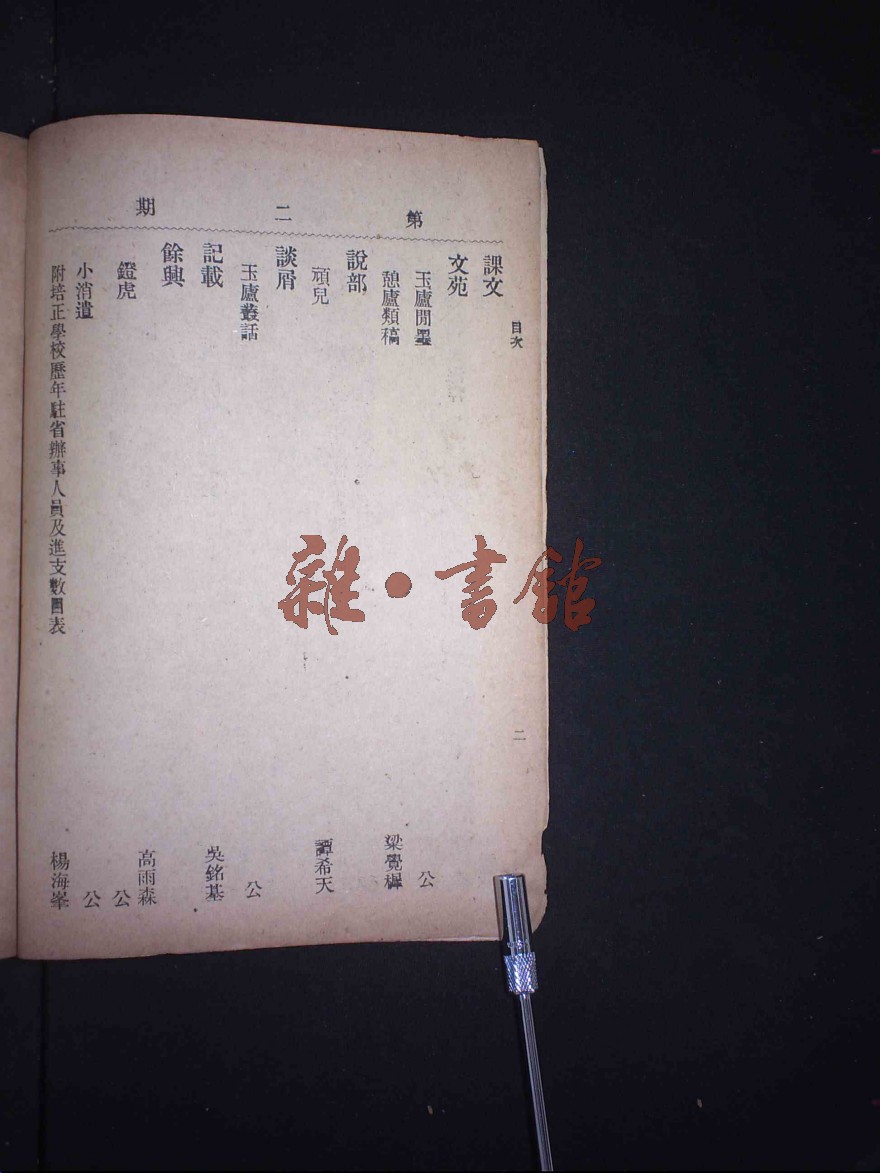 第二期
目次
二
課文
文苑
玉廬閒墨 公
憩廬類稿 梁覺樨
說部
頑兒 譚希天
談屑
玉廬叢話 公
記載 吳銘基
餘興 高雨森
鐙虎 公
小消遣 公
附培正學校歷年駐省辦事人員及進支數目表 楊海峯
雜·書館